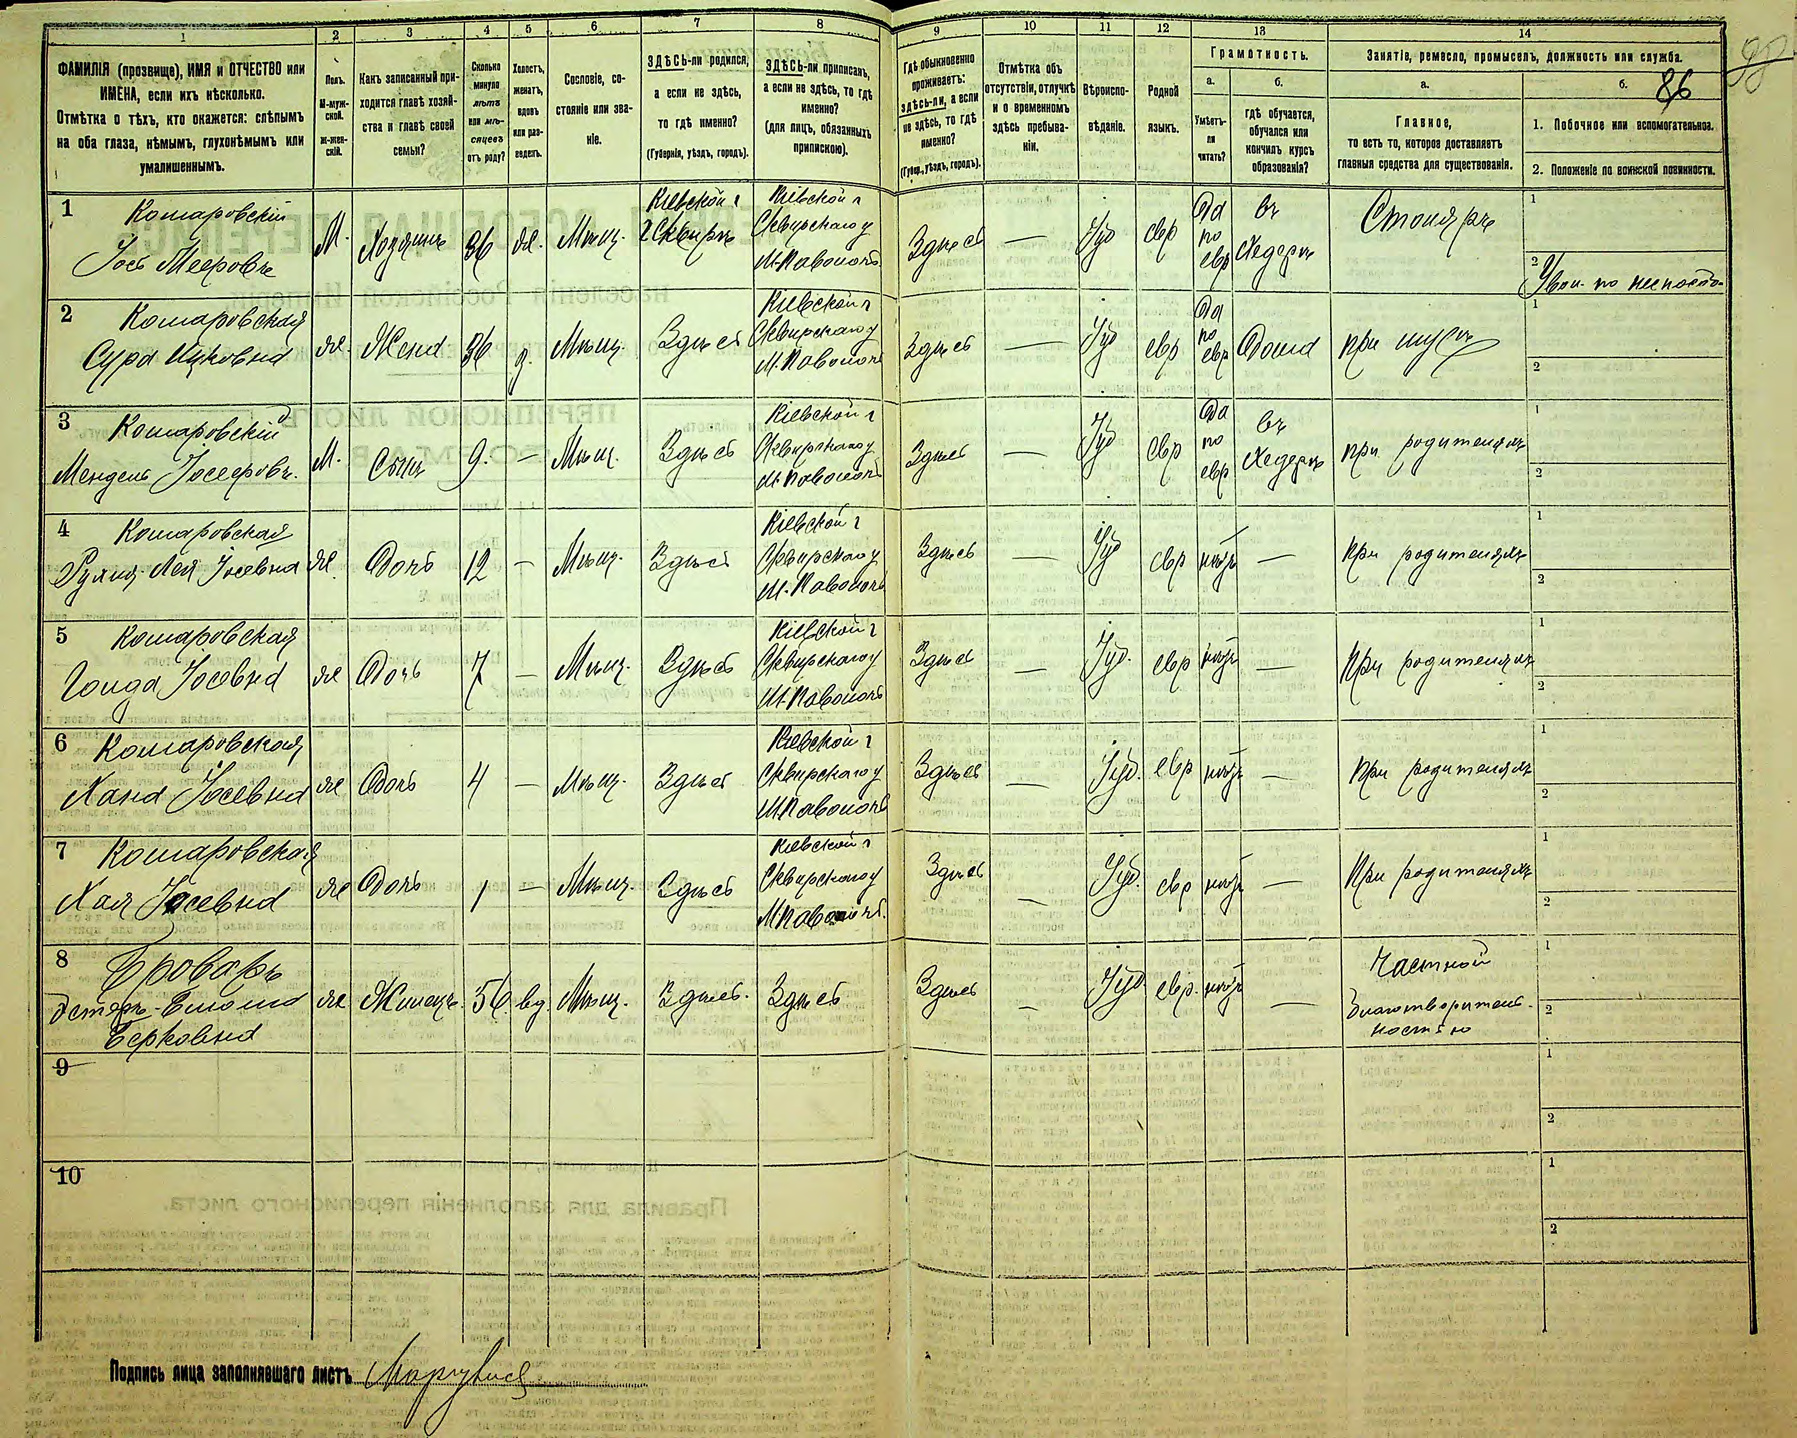 1 2 3 4 5 6 7 8 9 10 11 12 13 14
ФАМИЛІЯ (прозвище), ИМЯ и ОТЧЕСТВО или
ИМЕНА, если ихъ нѣсколько.
Отмѣтка о тѣхъ, кто окажется: слѣпымъ
на оба глаза, нѣмымъ, глухонѣмымъ или
умалишеннымъ.
Полъ.
М-муж-
ской.
ж-жен-
скій.
Какъ записанный при-
ходится главѣ хозяй-
ства и главѣ своей
семьи?
Сколько
минуло
лѣтъ
или мѣ-
сяцевъ
отъ роду?
Холостъ,
женатъ,
вдовъ
или раз-
веденъ.
Сословіе, со-
стояніе или зва-
ніе.
ЗДѢСЬ-ли родился,
а если не здѣсь,
то гдѣ именно?
(Губернія, уѣздъ, городъ).
ЗДѢСЬ-ли приписанъ,
а если не здѣсь, то гдѣ
именно?
(для лицъ, обязанныхъ
припискою).
Гдѣ обыкновенно
проживаетъ:
здѣсь-ли, а если
не здѣсь, то гдѣ
именно?
(Губер., уѣздъ, городъ).
Отмѣтка объ
отсутствіи, отлучкѣ
и о временномъ
здѣсь пребыва-
ніи.
Вѣроиспо-
вѣданіе.
Родной
языкъ.
Грамотность.
а.
Умѣетъ-
ли
читать?
б.
гдѣ обучается,
обучался или
кончилъ курсъ
образованія?
Занятіе, ремесло, промыселъ, должность или служба.
а.
Главное,
то есть то, которое доставляетъ
главныя средства для существованія.
б. 86
1. Побочное или вспомогательное.
2. Положеніе по воинской повинности.
1 Комаровскій
Іось Мееровъ
М. Хозяинъ 36 ж. Мѣщ.
Кіевской г
г Сквирѣ
Кіевской г
Сквирскаго у
М. Паволочь
Здѣсь — Іуд евр
Да
по
евр
въ
Хедерѣ
Столяръ
1
2
2 Комаровская
Сура Ицковна
ж. Жена 36 з. Мѣщ. Здѣсь
Кіевской г
Сквирскаго у
М. Паволочь
Здѣсь — Іуд евр
Да
по
евр
Дома
при мужѣ
1
2
3 Комаровскій
Мендель
М. Сынъ 9. — Мѣщ. Здѣсь
Кіевской г
Сквирскаго у
М. Паволочь
Здѣсь — Іуд евр
Да
по
евр
въ
Хедерѣ
при родителяхъ
1
2
4 Комаровская
Лея Іосевна
ж. Дочь 12 — Мѣщ. Здѣсь
Кіевской г
Сквирскаго у
М. Паволочь
Здѣсь — Іуд евр нѣтъ —
При родителяхъ
1
2
5 Комаровская
Голда Іосевна
ж Дочь 7 — Мѣщ. Здѣсь
Кіевской г
Сквирскаго у
М. Паволочь
Здѣсь — Іуд. евр нѣтъ —
При родителяхъ
1
2
6 Комаровская
Хана Іосевна
ж Дочь 4 — Мѣщ. Здѣсь
Кіевской г
Сквирскаго у
М. Паволочь
Здѣсь — Іуд. евр нѣтъ —
При родителяхъ
1
2
7 Комаровская
Хая Іосевна
ж Дочь 1 — Мѣщ. Здѣсь
Кіевской г
Сквирскаго у
М. Паволочь
Здѣсь — Іуд. евр нѣтъ —
При родителяхъ
1
2
8 Броваръ
Эстеръ-
Берковна
ж Жилецъ 56. вд. Мѣщ. Здѣсь. Здѣсь Здѣсь — Іуд. евр. нѣтъ —
Частной
благотворитель-
ностью
1
2
9
1
2
10
1
2
Подпись лица заполнявшаго листъ